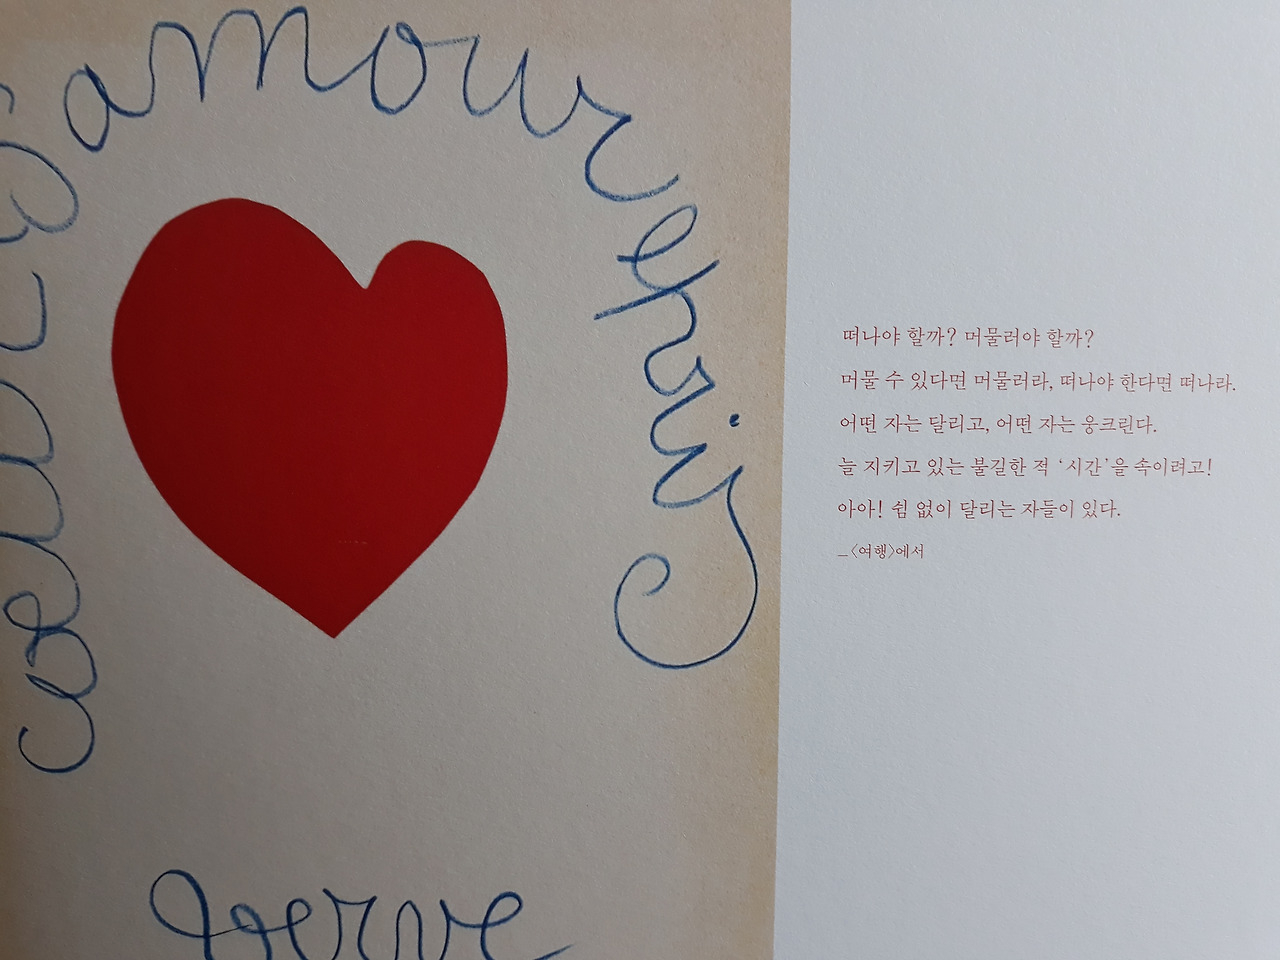 coeur d'amour epris
verve
떠나야 할까? 머물러야 할까?
머물 수 있다면 머물러라, 떠나야 한다면 떠나라.
어떤 자는 달리고, 어떤 자는 웅크린다.
늘 지키고 있는 불길한 적 ‘시간’을 속이려고!
아아! 쉼 없이 달리는 자들이 있다.
_〈여행〉에서